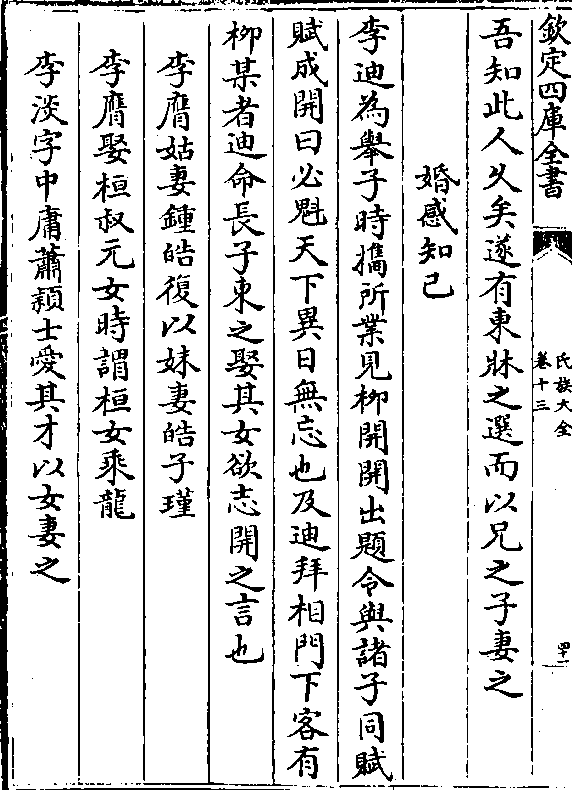 欽定四庫全書
氏族大全
卷十三
四十一
吾知此人久矣遂有東牀之選而以兄之子妻之
婚感知己
李迪為舉子時攜所業見柳開開出題令與諸子同賦
賦成開曰必魁天下異日無忘也及迪拜相門下客有
柳某者迪命長子東之娶其女欲志開之言也
李膺姑妻鍾皓復以妹妻皓子瑾
李膺娶桓叔元女時謂桓女乘龍
李淡字中庸蕭穎士愛其才以女妻之